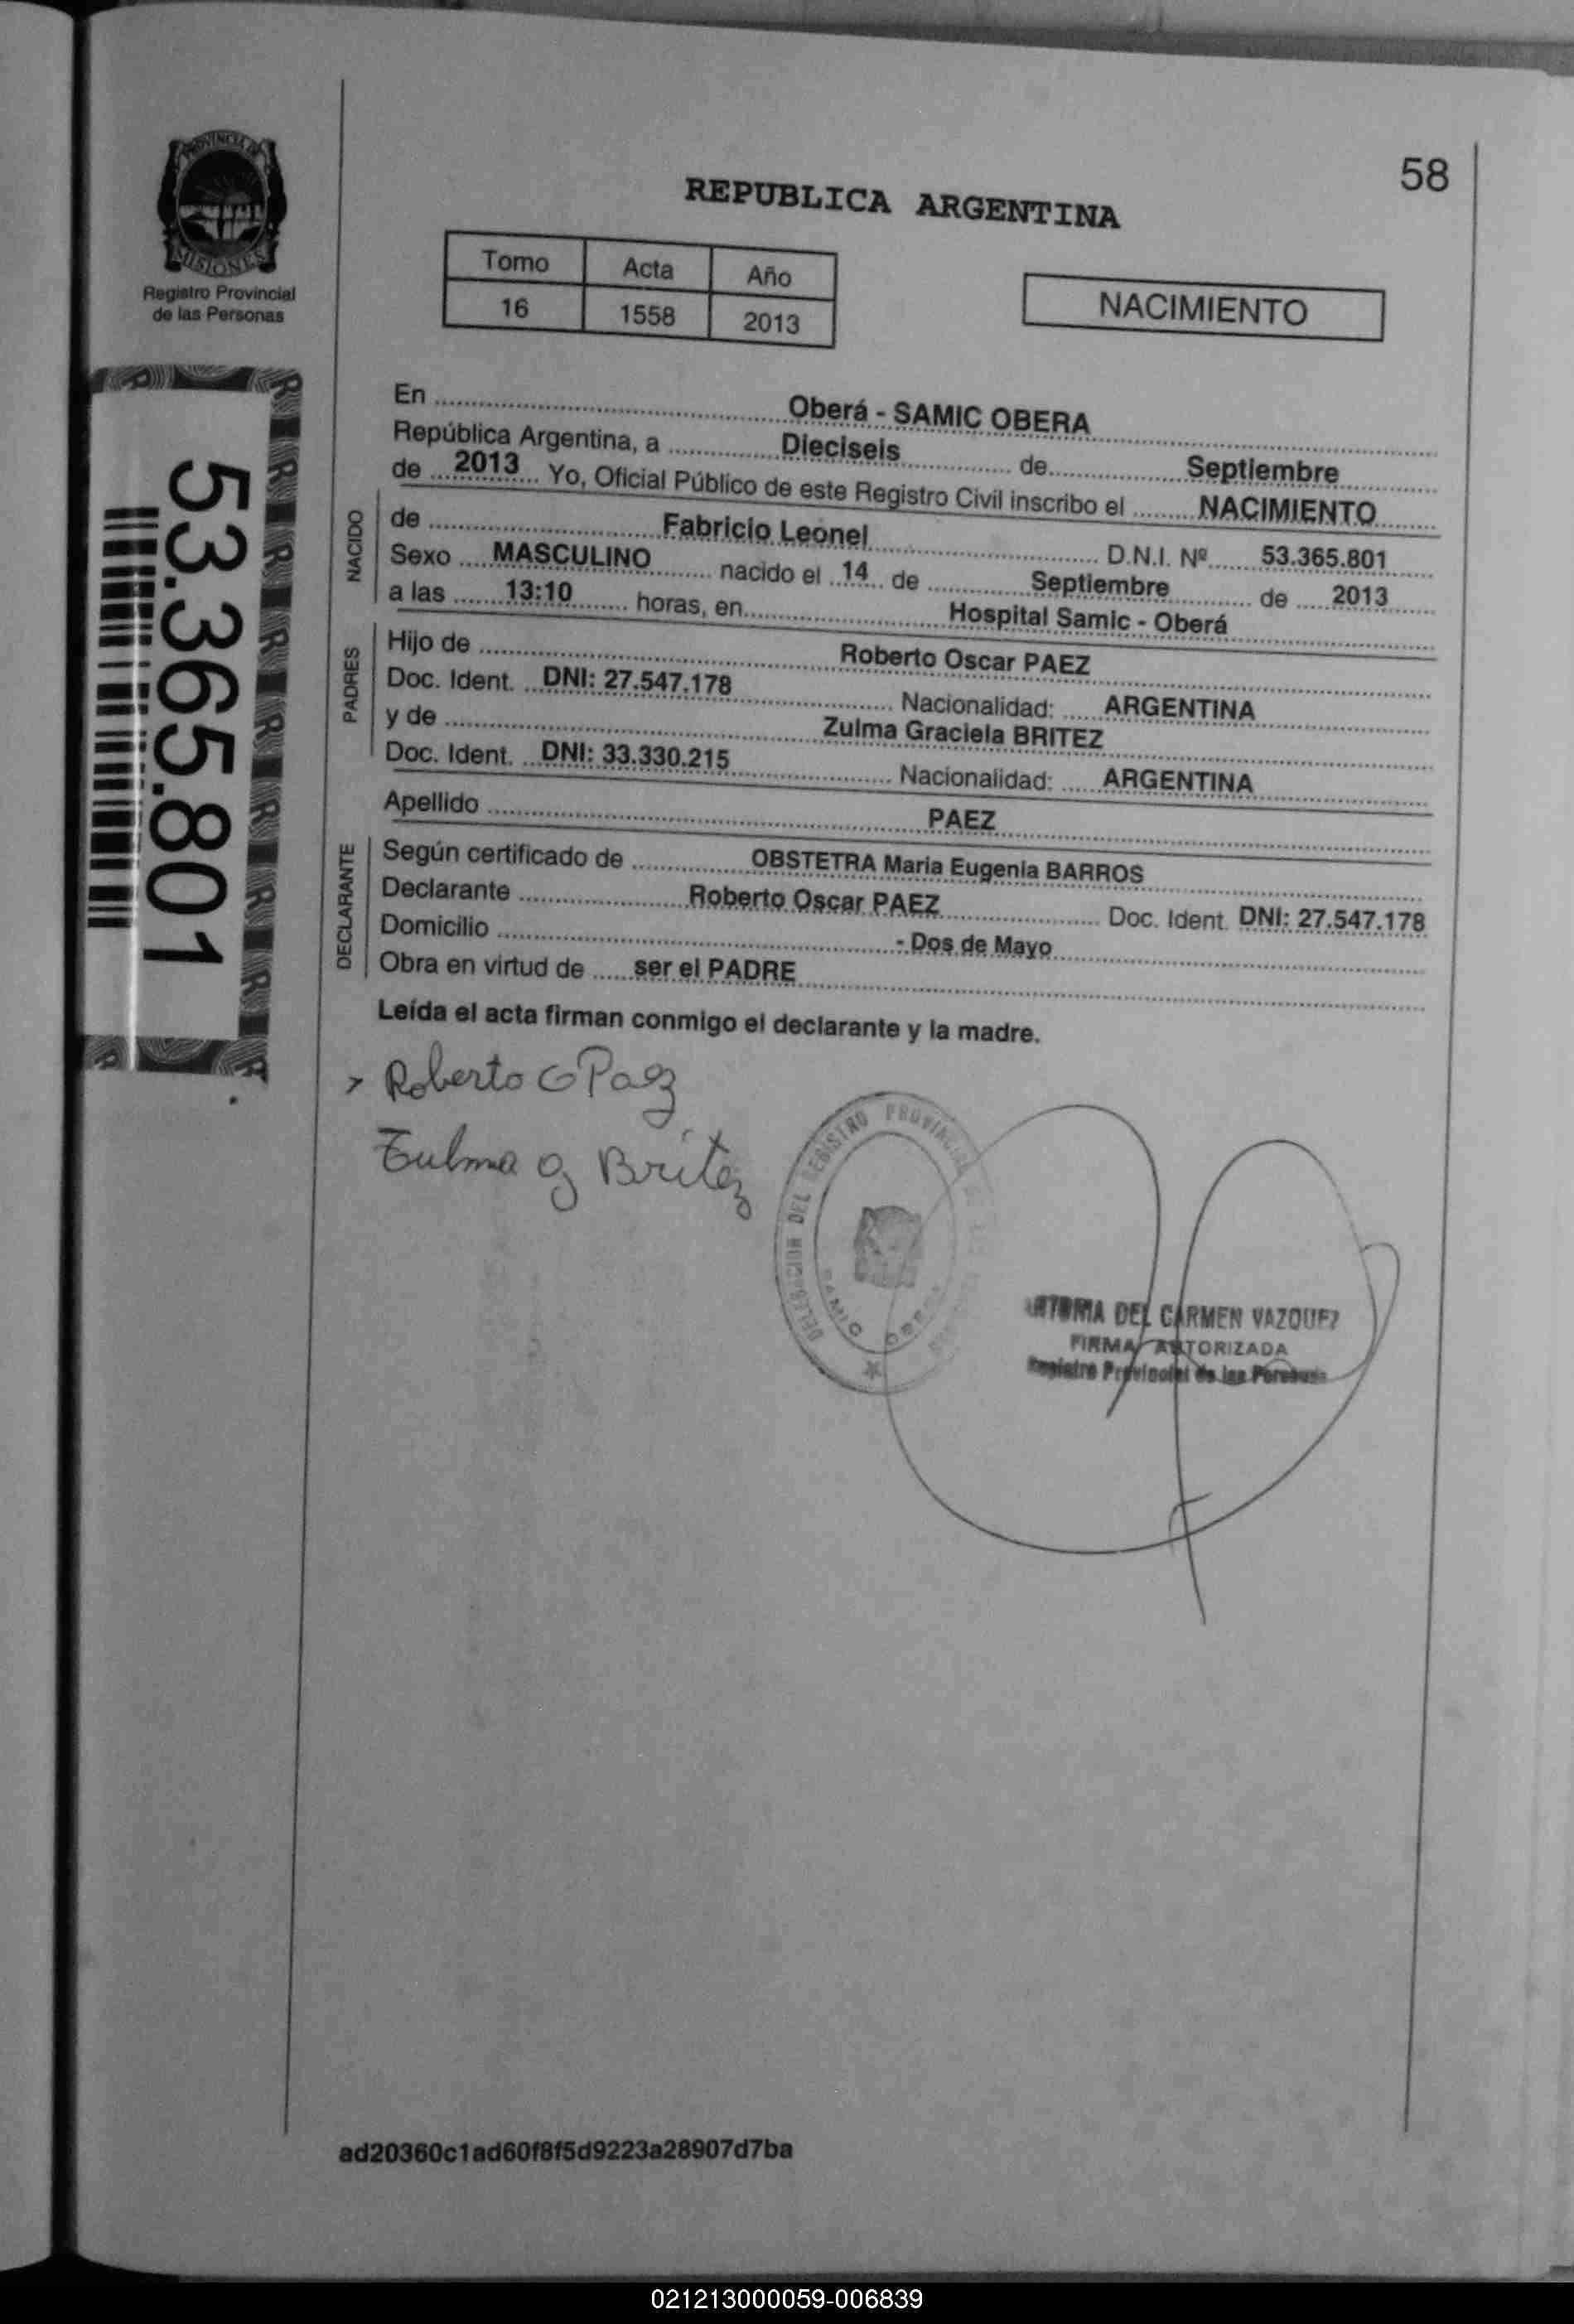 58
PROVINCIA DE
MISIONES
Registro Provincial
de las Personas
REPUBLICA ARGENTINA
Tomo Acta Año
16 1558 2013
NACIMIENTO
53.365.801
En Oberá - SAMIC OBERA
República Argentina, a Dieciseis de Septiembre
de 2013 Yo, Oficial Público de este Registro Civil inscribo el NACIMIENTO
NACIDO
de Fabricio Leonel D.N.I. Nº 53.365.801
Sexo MASCULINO nacido el 14 de Septiembre de 2013
a las 13:10 horas, en Hospital Samic - Oberá
PADRES
Hijo de Roberto Oscar PAEZ
Doc. Ident. DNI: 27.547.178 Nacionalidad: ARGENTINA
y de Zulma Graciela BRITEZ
Doc. Ident. DNI: 33.330.215 Nacionalidad: ARGENTINA
Apellido PAEZ
DECLARANTE
Según certificado de OBSTETRA Maria Eugenia BARROS
Declarante Roberto Oscar PAEZ Doc. Ident. DNI: 27.547.178
Domicilio - Dos de Mayo
Obra en virtud de ser el PADRE
Leída el acta firman conmigo el declarante y la madre.
Roberto O Paez
Zulma G Britez
DELEGACION DEL REGISTRO PROVINCIAL
SAMIC OBERA
DEL CARMEN VAZQUEZ
FIRMA AUTORIZADA
Registro Provincial de las Personas
ad20360c1ad60f8f5d9223a28907d7ba
021213000059-006839